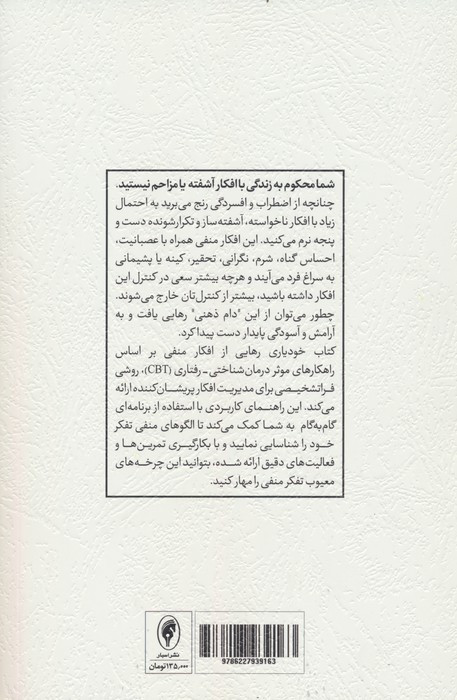 شما محکوم به زندگی با افکار آشفته یا مزاحم نیستید.
چنانچه از اضطراب و افسردگی رنج می‌برید به احتمال
زیاد با افکار ناخواسته، آشفته‌ساز و تکرارشونده دست و
پنجه نرم می‌کنید. این افکار منفی همراه با عصبانیت،
احساس گناه، شرم، نگرانی، تحقیر، کینه یا پشیمانی
به سراغ فرد می‌آیند و هرچه بیشتر سعی در کنترل این
افکار داشته باشید، بیشتر از کنترل‌تان خارج می‌شوند.
چطور می‌توان از این "دام ذهنی" رهایی یافت و به
آرامش و آسودگی پایدار دست پیدا کرد.
کتاب خودیاری رهایی از افکار منفی بر اساس
راهکارهای موثر درمان‌شناختی ـ رفتاری (CBT)، روشی
فراتشخیصی برای مدیریت افکار پریشان‌کننده ارائه
می‌کند. این راهنمای کاربردی با استفاده از برنامه‌ای
گام‌به‌گام به شما کمک می‌کند تا الگوهای منفی تفکر
خود را شناسایی نمایید و با بکارگیری تمرین‌ها و
فعالیت‌های دقیق ارائه شده، بتوانید این چرخه‌های
معیوب تفکر منفی را مهار کنید.
نشر اسبار
۱۳۵,۰۰۰ تومان
9786227839163